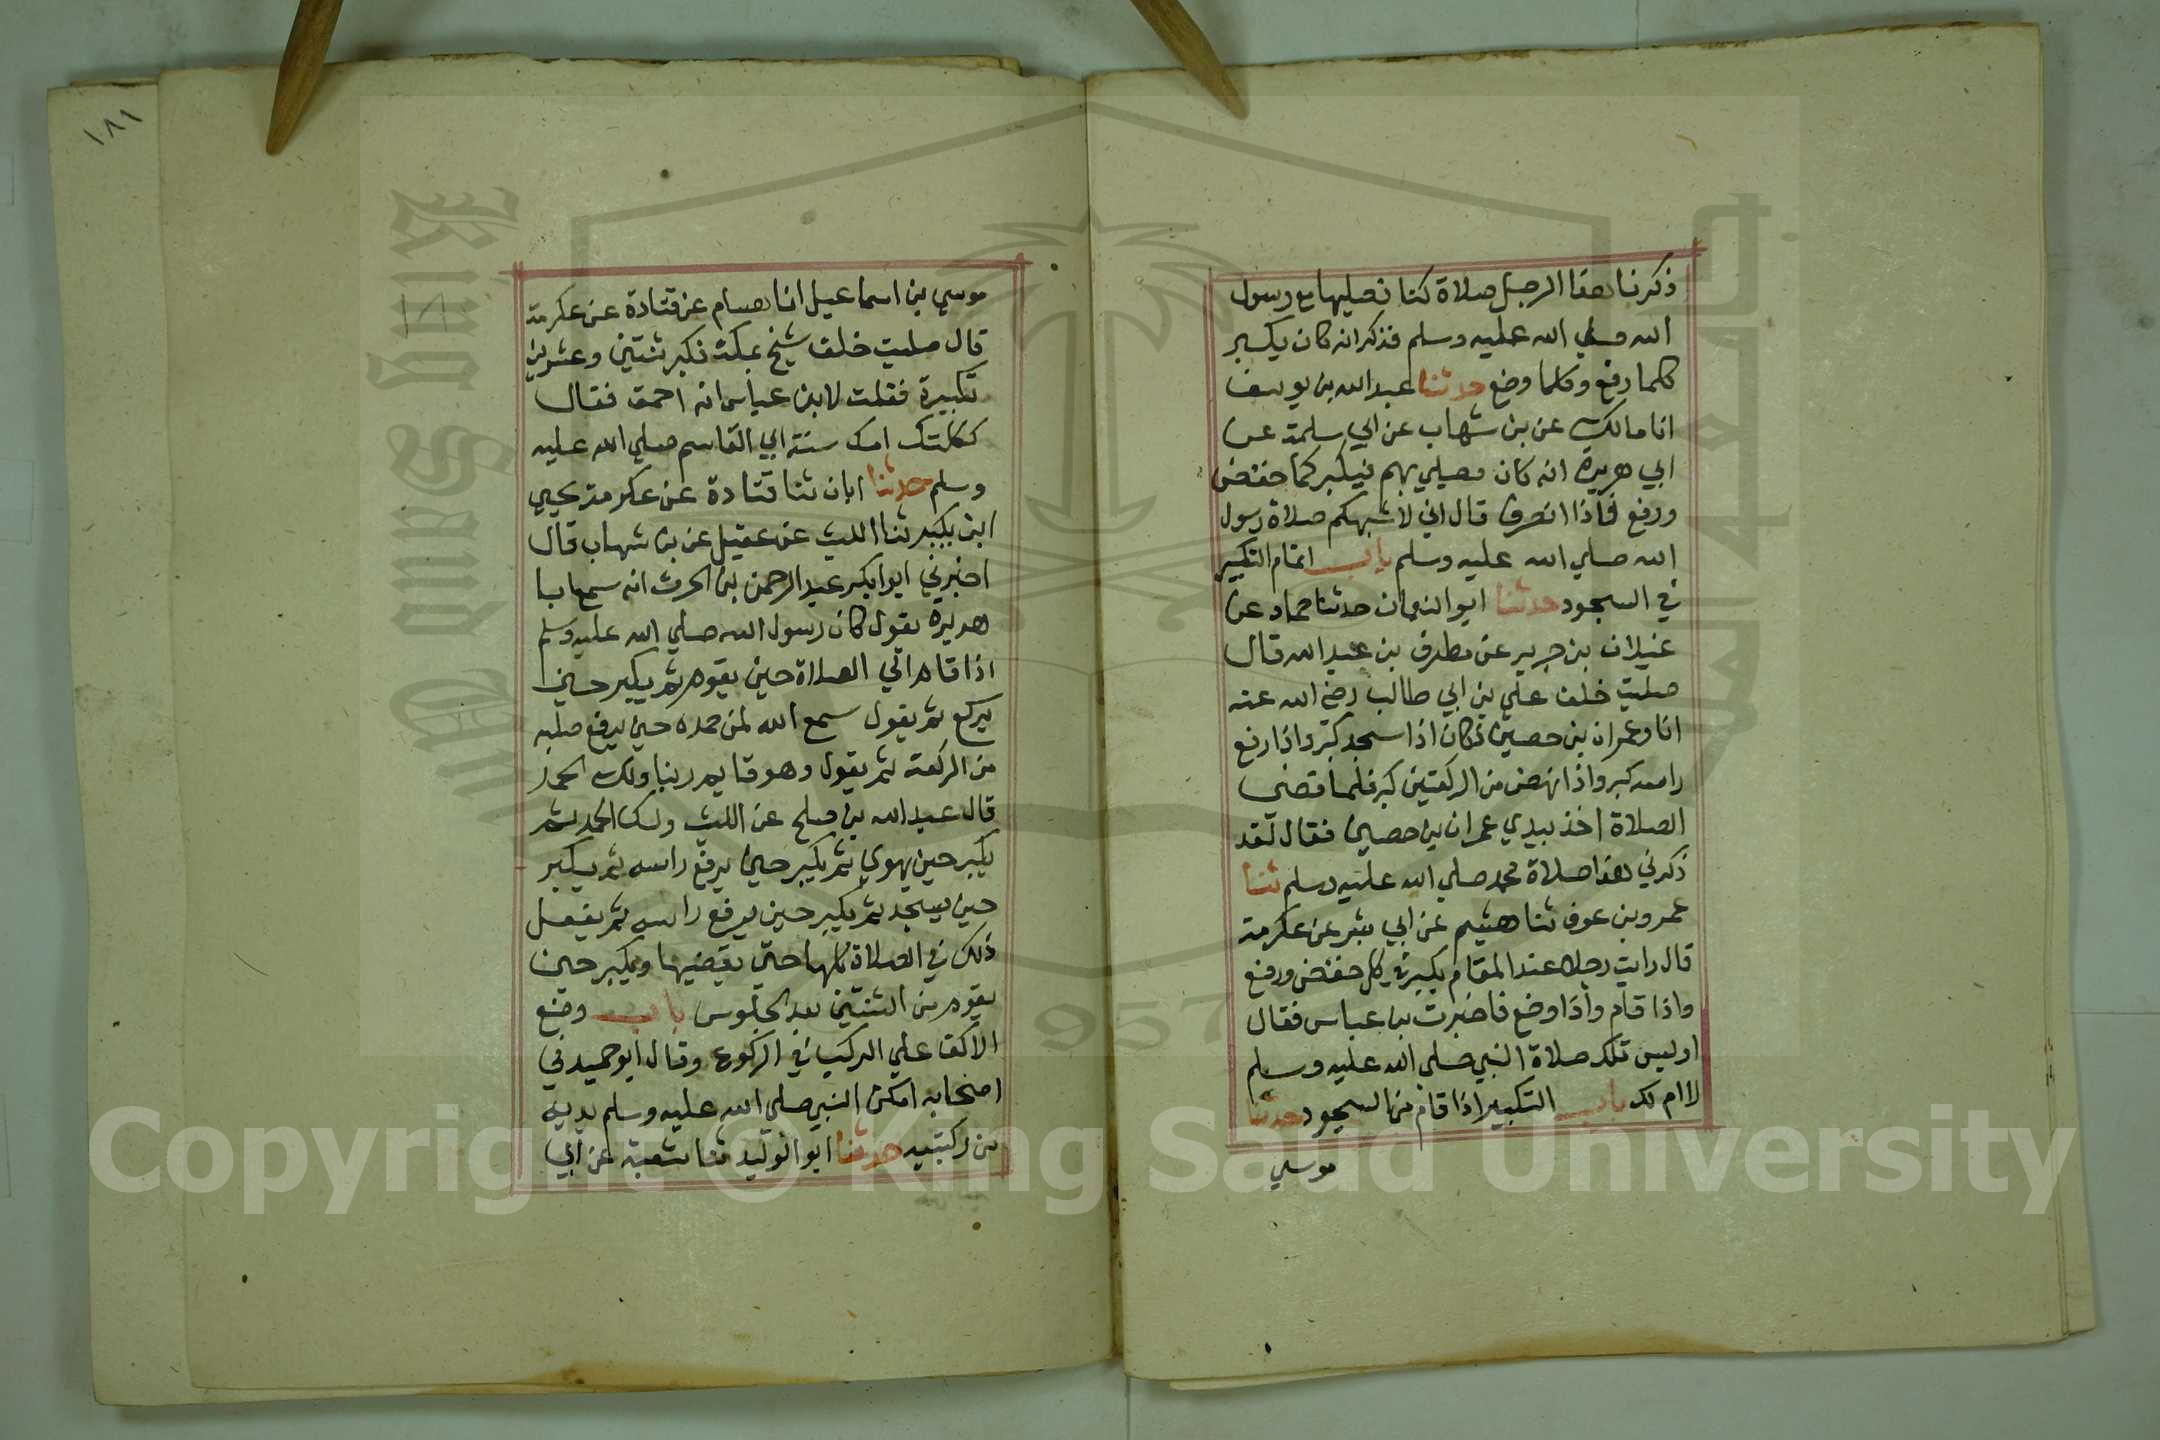 ذكرنا هذا الرجل صلاة كنا نصليها مع رسول
الله صلي الله عليه وسلم فذكر انه كان يكبر
كلما رفع وكلما وضع حدثنا عبد الله بن يوسف
انا مالك عن بن شهاب عن ابي سلمة عن
ابي هريرة انه كان يصلي بهم فيكبر كما خفض
ورفع فاذا انصرف قال اني لا شبهكم صلاة رسول
الله صلي الله عليه وسلم باب اتمام التكبير
في السجود حدثنا ابو النعمان حدثنا حماد عن
غيلان بن جرير عن مطرف بن عبد الله قال
صليت خلف علي بن ابي طالب رضي الله عنه
انا وعمران بن حصين فكان اذا سجد كبر واذا رفع
راسه كبر واذا نهض من الركعتين كبر فلما قضي
الصلاة اخذ بيدي عمران بن حصين فقال لقد
ذكرني هذا صلاة محمد صلي الله عليه وسلم ثنا
عمرو بن عوف ثنا هشيم عن ابي بشر عن عكرمة
قال رايت رجلا عند المقام يكبر في كل خفض ورفع
واذا قام واذا وضع فاخبرت بن عباس فقال
اوليس تلك صلاة النبي صلي الله عليه وسلم
لا ام لك باب التكبير اذا قام من السجود حدثنا
موسي
١٨١
موسي بن اسماعيل انا همام عن قتادة عن عكرمة
قال صليت خلف شيخ بمكة فكبر ثنتين وعشرين
تكبيرة فقلت لابن عباس انه احمق فقال
ثكلتك امك سنة ابي القاسم صلي الله عليه
وسلم حدثنا ابان ثنا قتادة عن عكرمة يحيي
ابن بكير ثنا الليث عن عقيل عن بن شهاب قال
اخبرني ابو ابكر عبد الرحمن بن الحرث انه سمع ابا
هريرة يقول كان رسول الله صلي الله عليه وسلم
اذا قام الي الصلاة حين يقوم ثم يكبر حين
يركع ثم يقول سمع الله لمن حمده حين يرفع صلبه
من الركعة ثم يقول وهو قايم ربنا ولك الحمد
قال عبد الله بن صلح عن الليث ولك الحمد ثم
يكبر حين يهوي ثم يكبر حين يرفع راسه ثم يكبر
حين يسجد ثم يكبر حين يرفع راسه ثم يفعل
ذلك في الصلاة كلها حتي يقضيها ويكبر حين
يقوم من الثنتين بعد الجلوس باب وضع
الاكف علي الركب في الركوع وقال ابو حميد في
اصحابه امكن النبي صلي الله عليه وسلم يديه
من ركبتيه حدثنا ابو الوليد ثنا شعبة عن ابي
King Saud University
957
Copyright © King Saud University